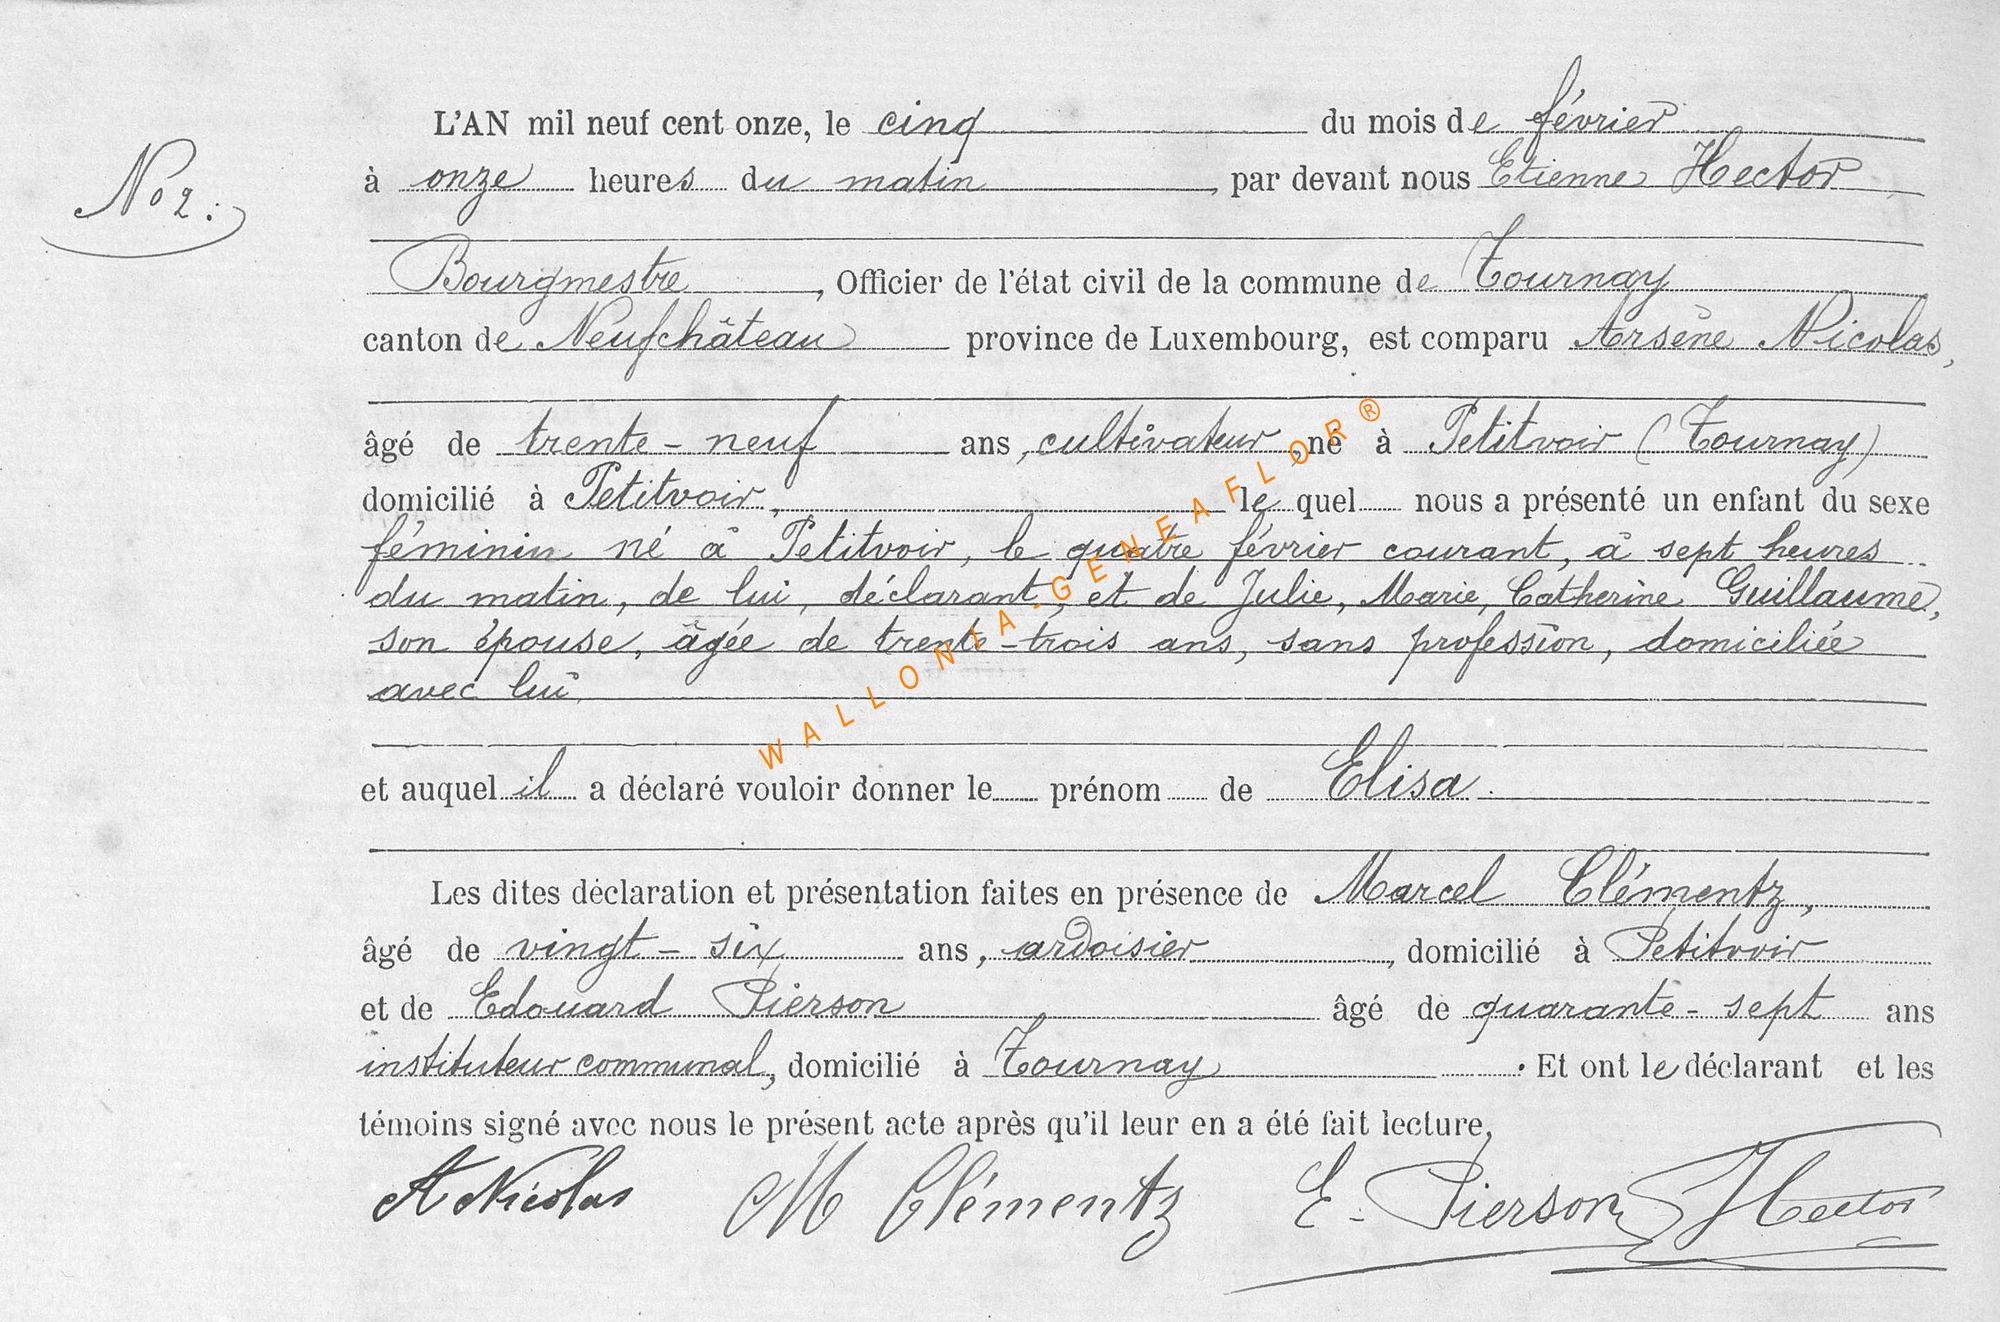 L'AN mil neuf cent onze, le cinq du mois de février
No 2.
à onze heures du matin, par devant nous Etienne Hector
Bourgmestre, Officier de l'état civil de la commune de Tournay
canton de Neufchâteau province de Luxembourg, est comparu Arsène Nicolas,
âgé de trente-neuf ans, cultivateur, né à Petitvoir (Tournay)
domicilié à Petitvoir, lequel nous a présenté un enfant du sexe
féminin né à Petitvoir, le quatre février courant, à sept heures
du matin, de lui, déclarant, et de Julie, Marie, Catherine Guillaume,
son épouse, âgée de trente-trois ans, sans profession, domiciliée
avec lui
WALLONIA-GENEAFLOR®
et auquel il a déclaré vouloir donner le prénom de Elisa.
Les dites déclaration et présentation faites en présence de Marcel Clémentz,
âgé de vingt-six ans, ardoisier, domicilié à Petitvoir
et de Edouard Pierson âgé de quarante-sept ans
instituteur communal, domicilié à Tournay. Et ont le déclarant et les
témoins signé avec nous le présent acte après qu'il leur en a été fait lecture,
A Nicolas M Clémentz E. Pierson Hector